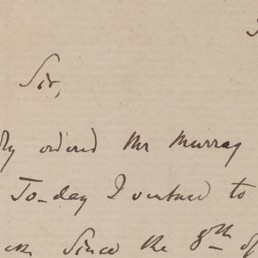 Sir,
ordered Mr Murray
To-day I ventured to
since the 8th of